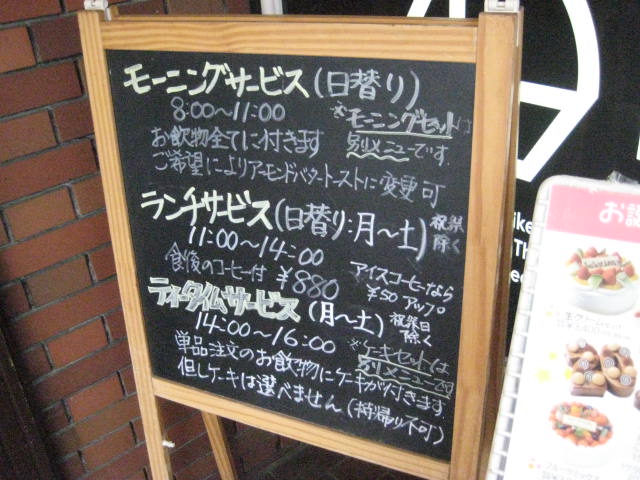 モーニングサービス(日替り)
8:00〜11:00
※モーニングセットは
別メニューです.
お飲物全てに付きます
ご希望によりアーモンドバタートーストに変更可
ランチサービス(日替り:月〜土)
祝祭
除く
11:00〜14:00
食後のコーヒー付 ¥880
アイスコーヒーなら
¥50 アップ
ティータイムサービス(月〜土)
祝祭日
除く
14:00〜16:00
※ケーキセットは
別メニューです
単品注文のお飲物にケーキが付きます
但しケーキは選べません(持帰り不可)
お誕